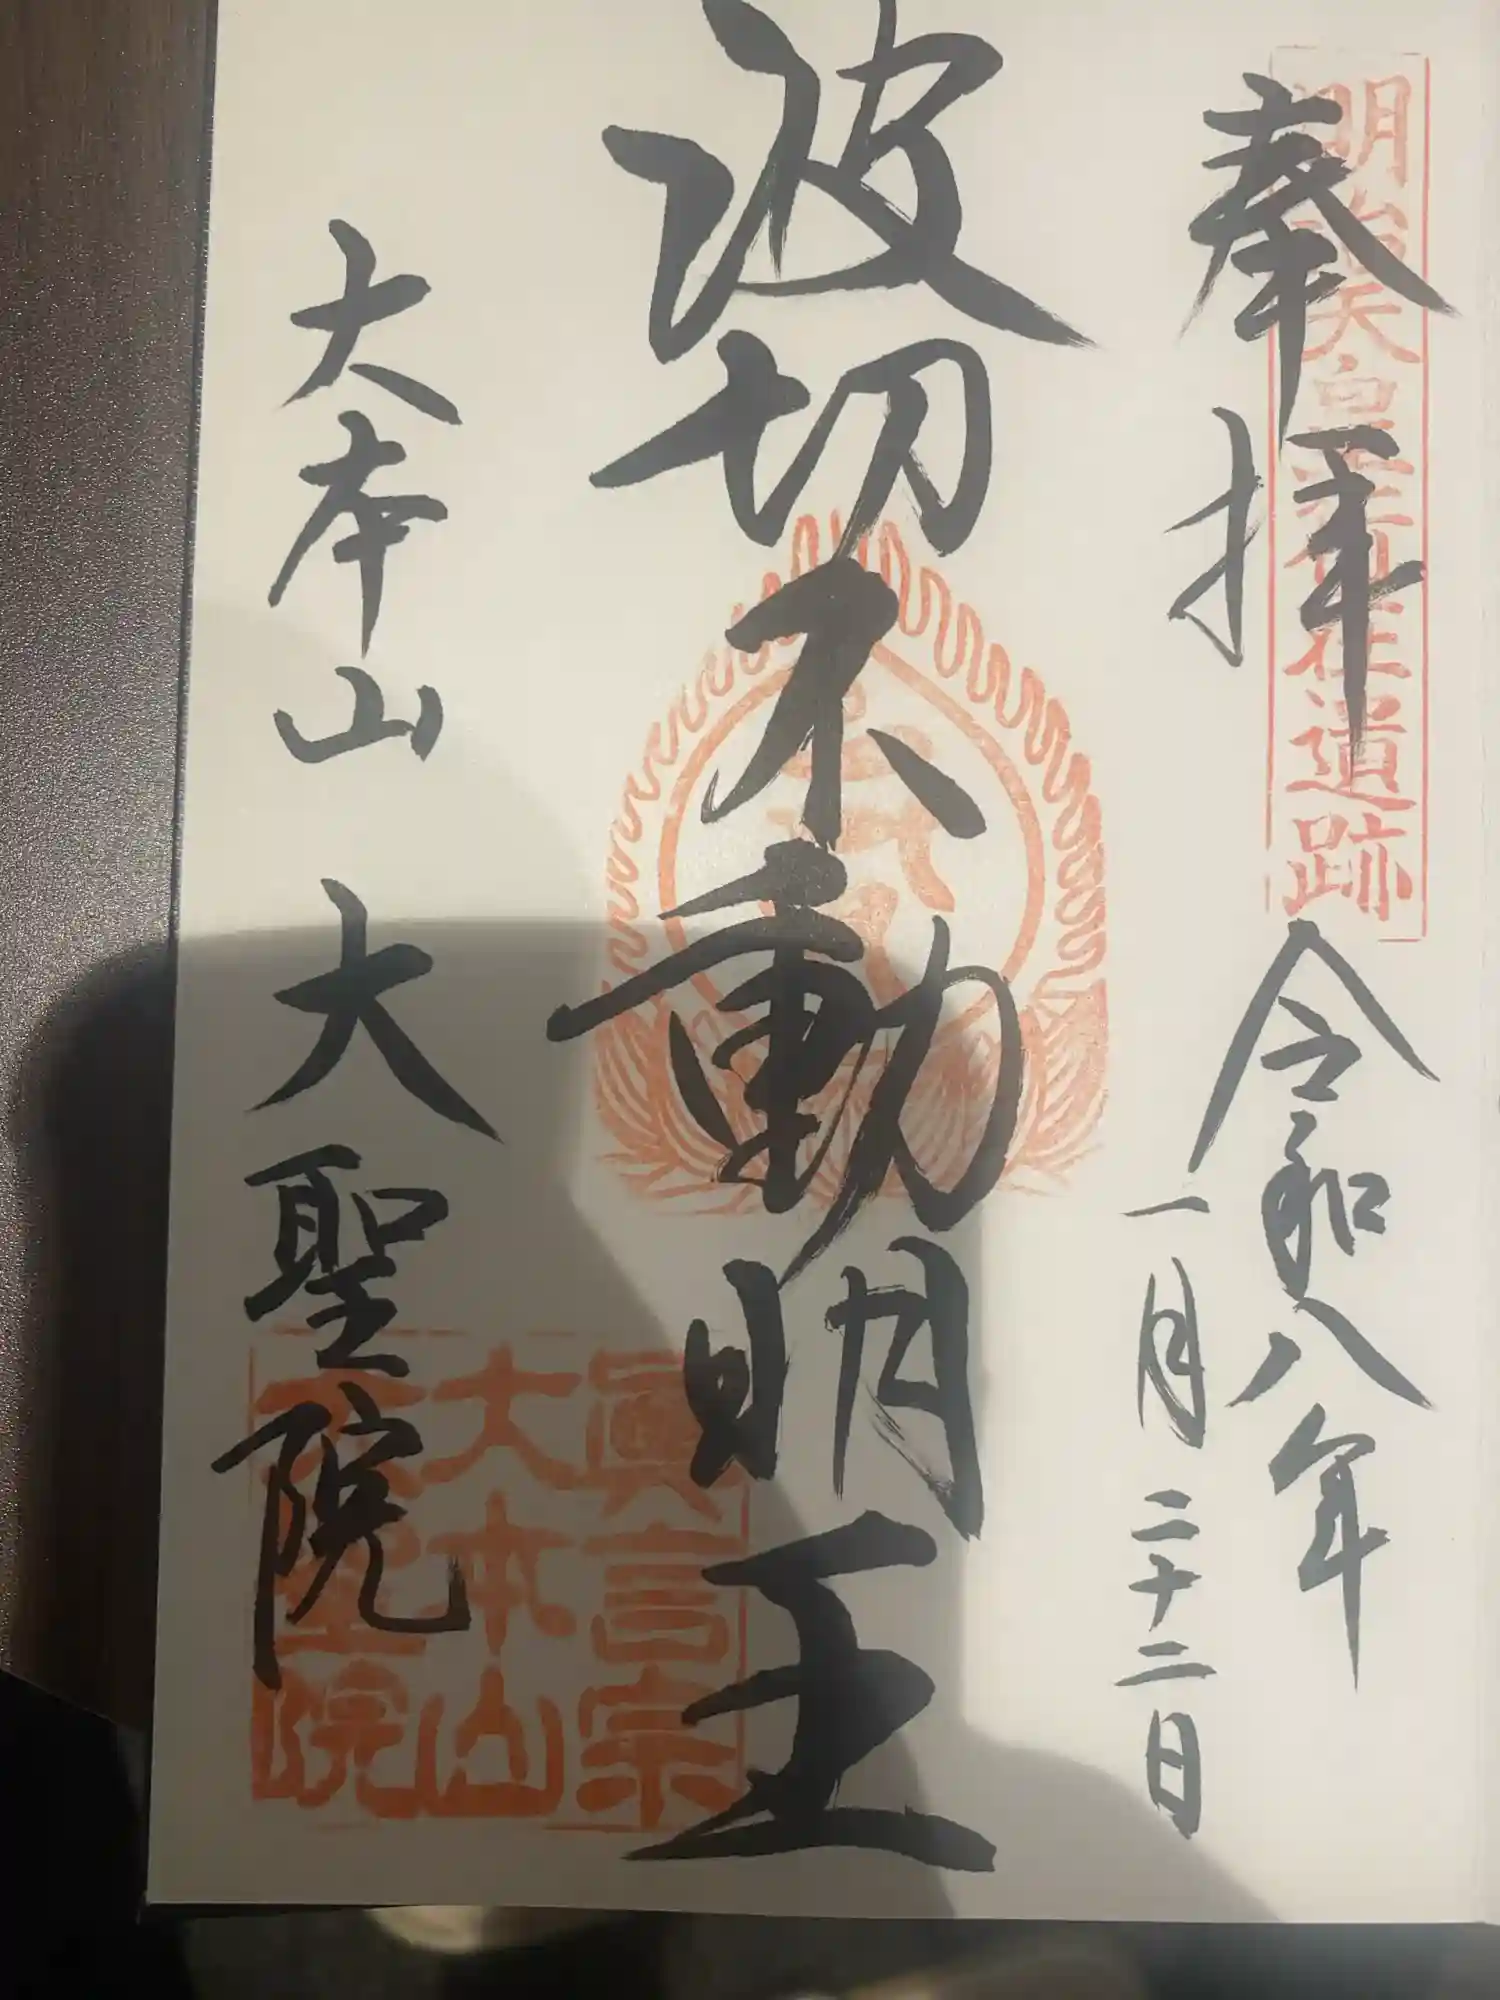 奉拝
明治天皇行在遺跡
令和八年
一月二十二日
波切不動明王
大本山 大聖院
眞言宗
大本山
大聖院